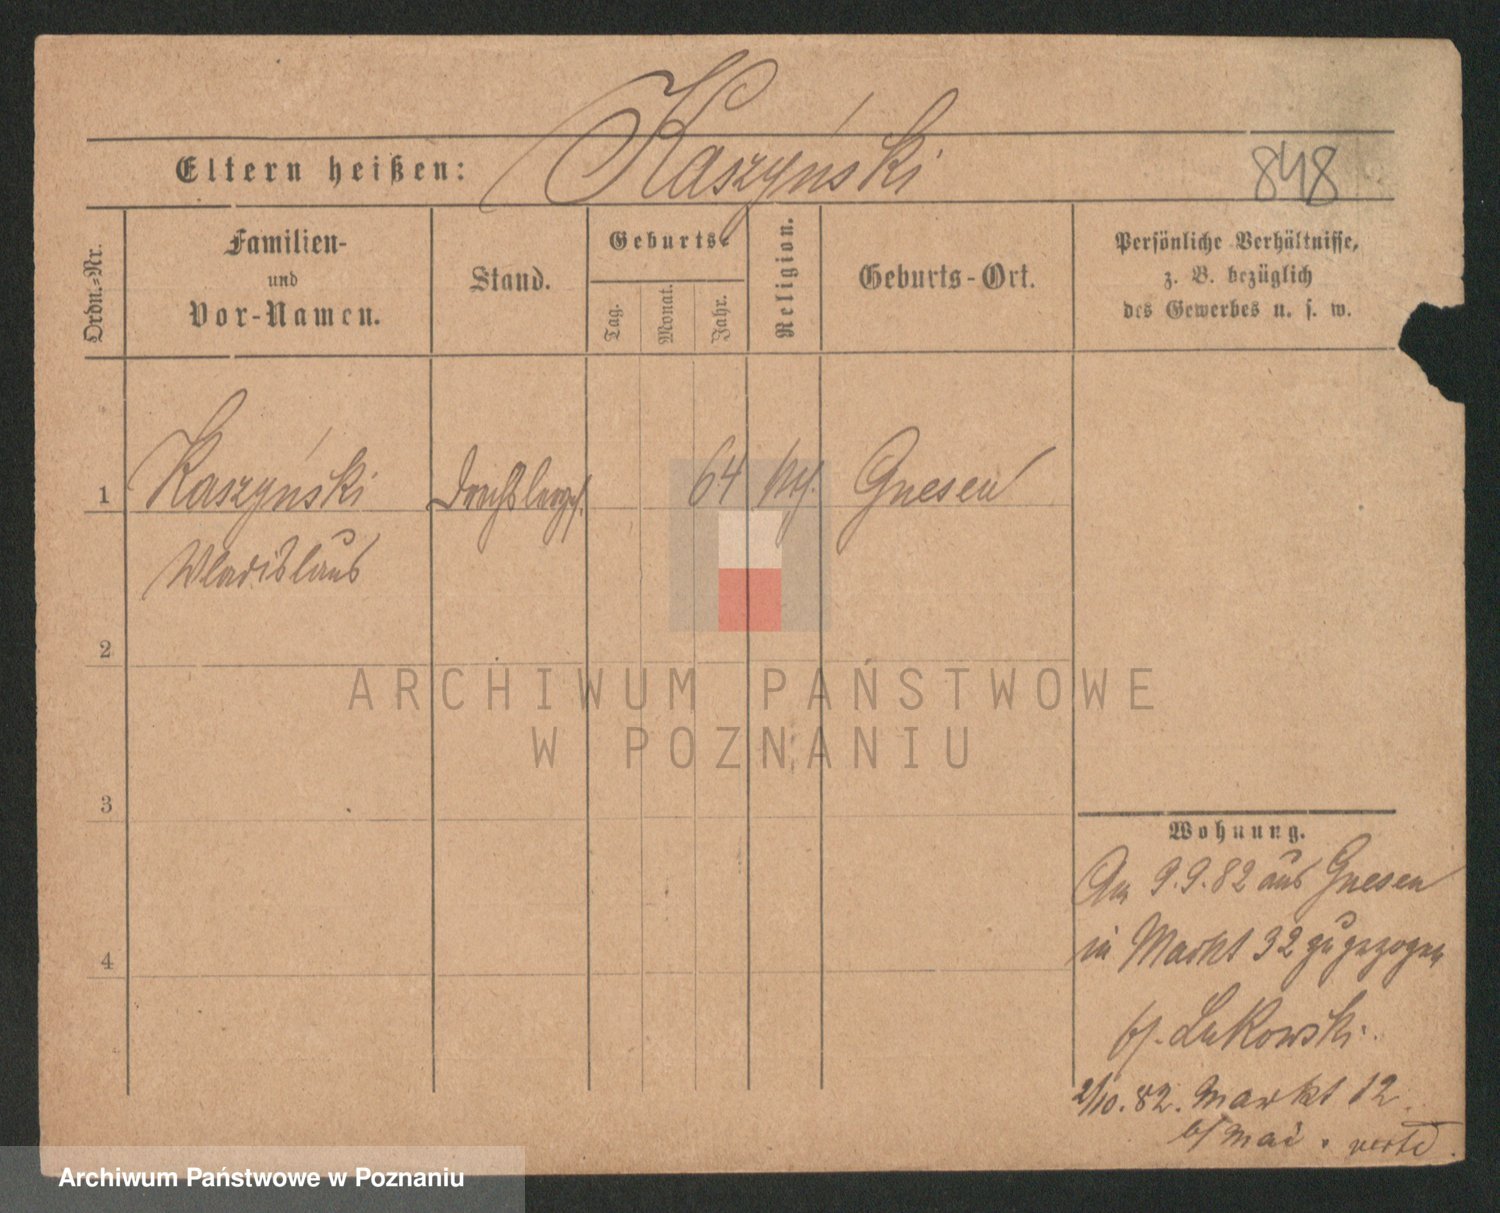 Kaszyński
Eltern heißen:
848
Ordn.-Nr.
Familien-
und
Vor-Namen.
Stand.
Geburts-
Tag.
Monat.
Jahr.
Religion.
Geburts-Ort.
Persönliche Verhältnisse,
z. B. bezüglich
des Gewerbes u. s. w.
1
Kaszyński
Wladislaus
Drechslerges.
64
kth.
Gnesen
2
3
4
ARCHIWUM PAŃSTWOWE
W POZNANIU
Wohnung.
Am 9.9.82 aus Gnesen
in Markt 32 zugezogen
bei Lukowski.
2/10. 82. Markt 12
b/ Mai. verte
Archiwum Państwowe w Poznaniu